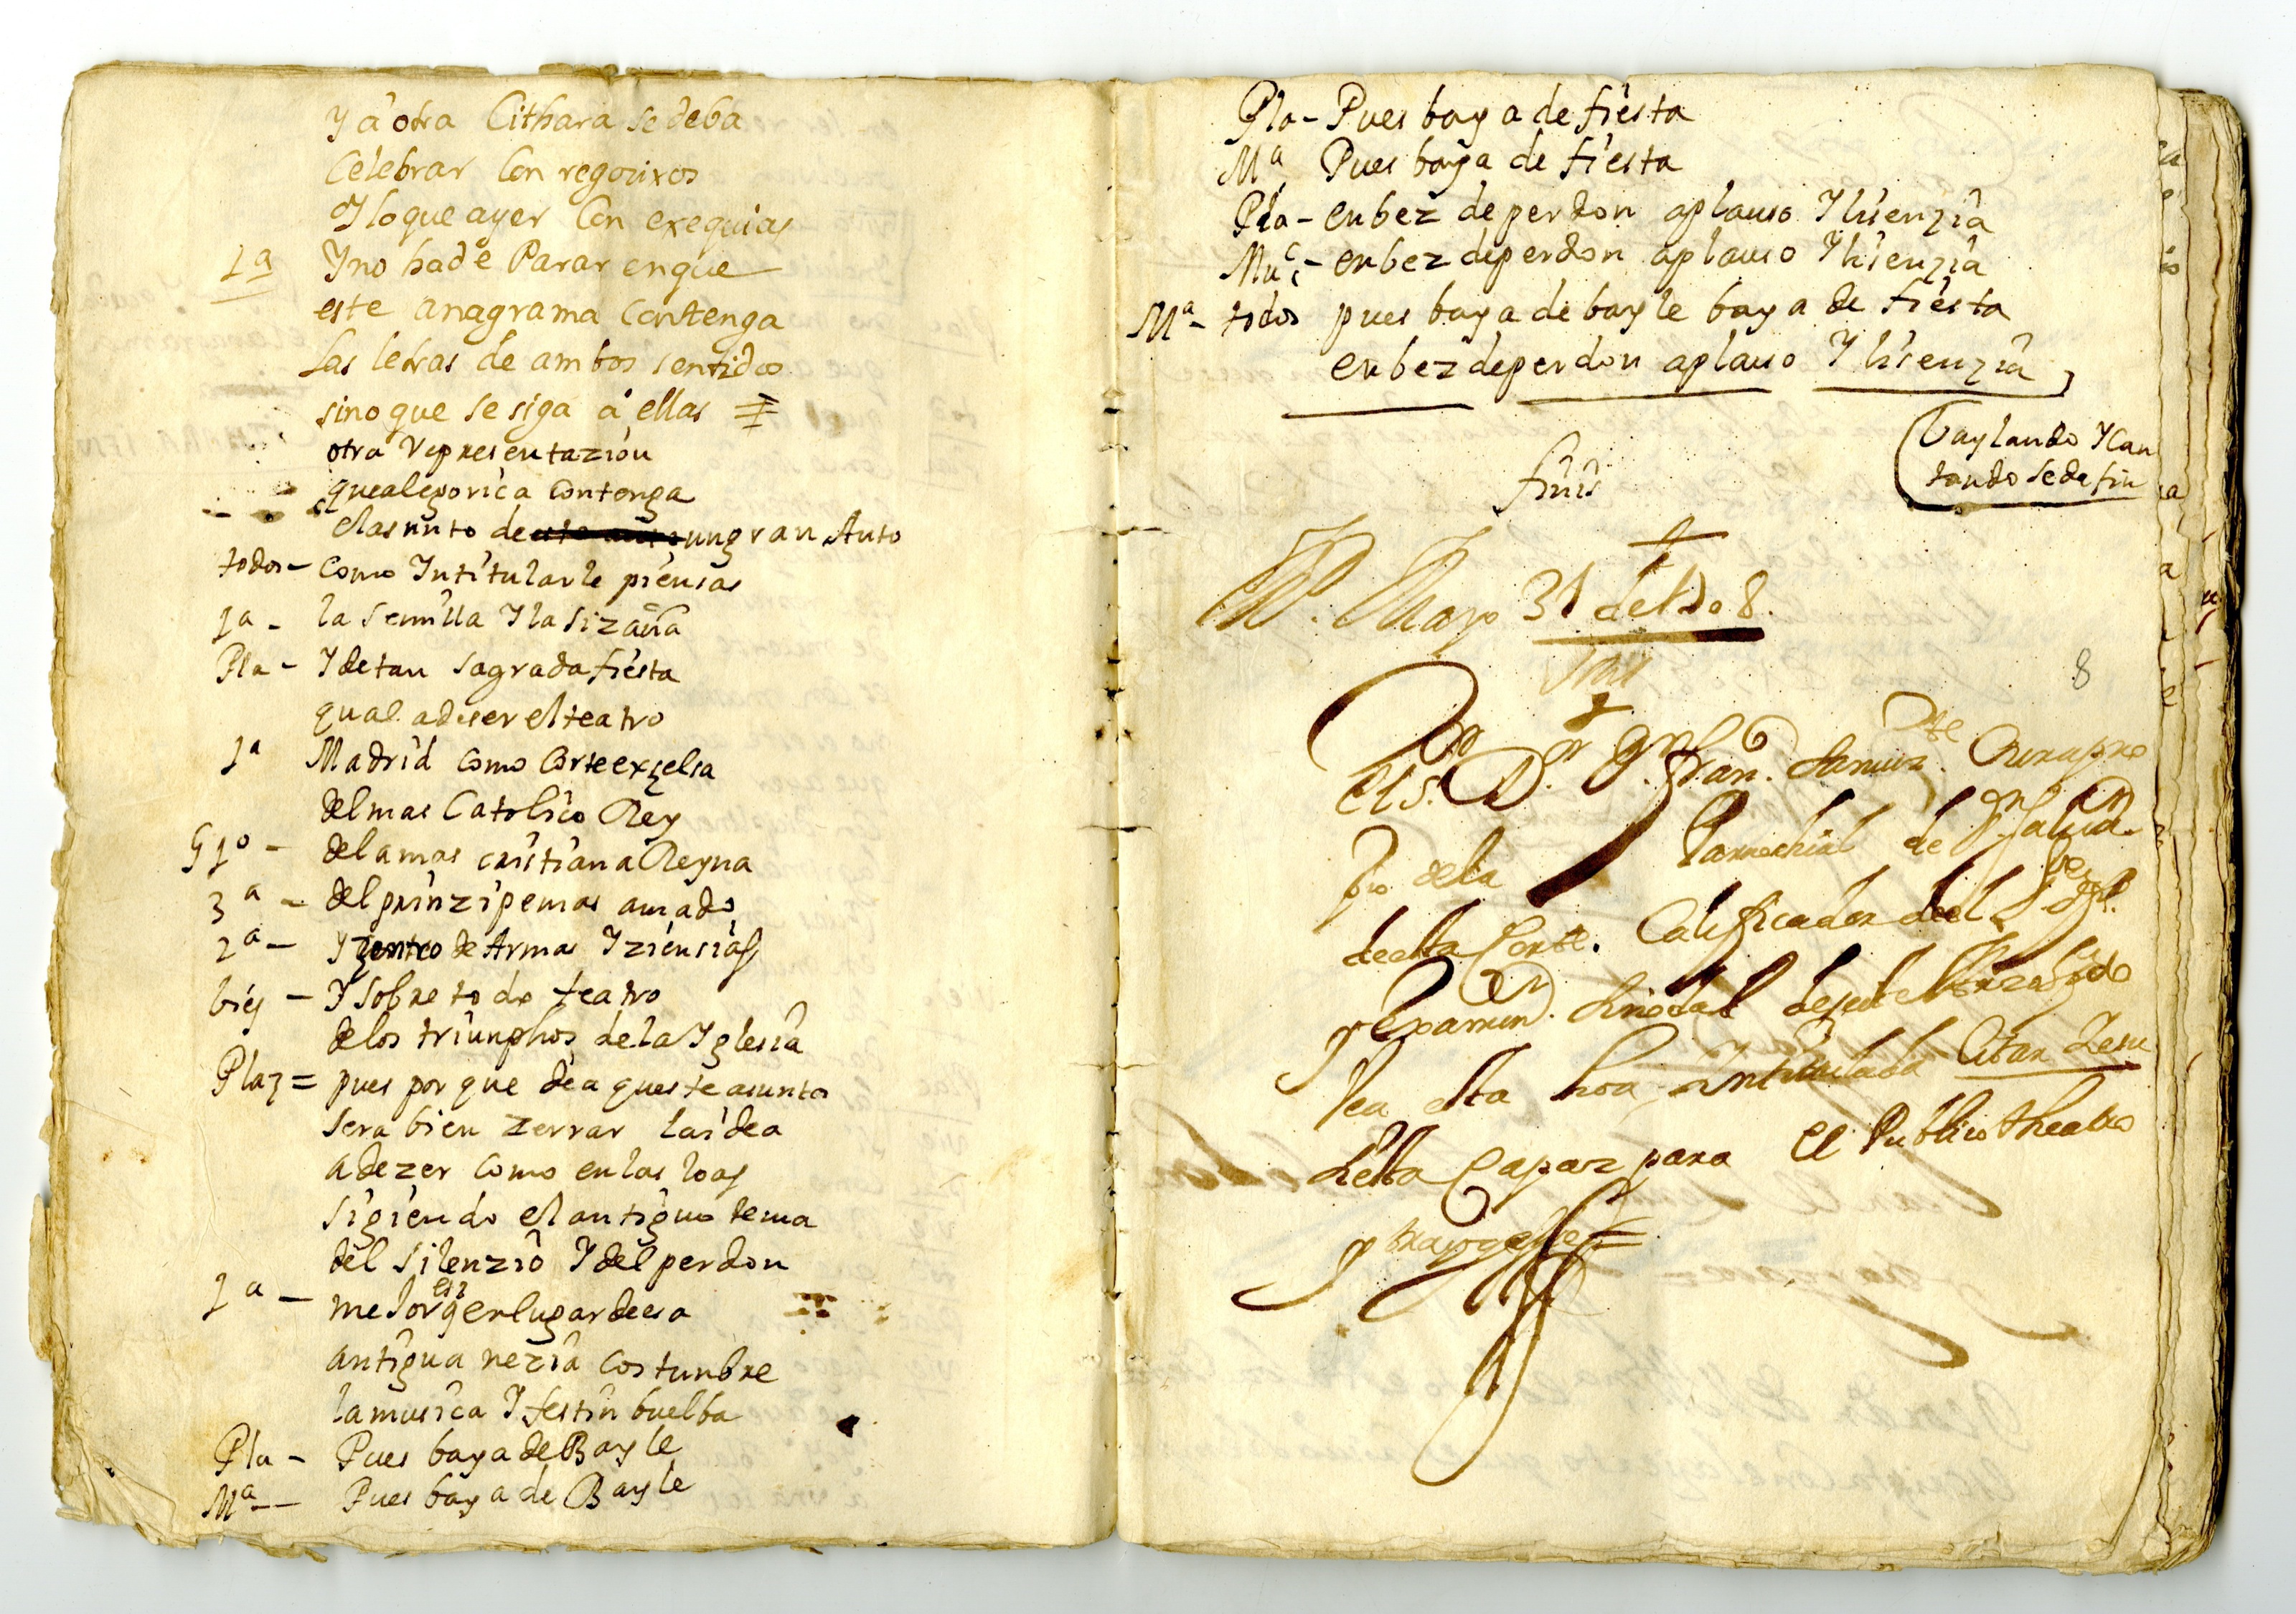 Y a otra Cithara se deba
Celebrar Con regocixos
Y lo que ayer Con exequias
1ª Y no ha de Parar en que
este anagrama Contenga
Las letras de ambos sentidos
sino que se siga a ellas
otra Representazion
que alegorica Contenga
el asunto de un gran Auto
todos - Como Intitularle piensas
1ª - la semilla Y la sizaña
Pla - Y de tan sagrada fiesta
qual a de ser el teatro
1ª Madrid como Corte exzelsa
del mas Catolico Rey
G 1º - de la mas cristiana Reyna
3ª - del prinzipe mas amado
2ª - Y zentro de Armas Y ziensias
biej - Y sobre todo teatro
de los triunphos de la Yglesia
Plaz = pues por que de aqueste asunto
sera bien zerrar la idea
a dezer como en las loas
sigiendo el antiguo tema
del silenzio Y del perdon
1ª - mejor es q en lugar de esa
antigua nezia costunbre
la musica Y festin buelba
Pla - Pues baya de Bayle
Mª - Pues baya de Bayle
Pla - Pues baya de fiesta
Mª Pues baya de fiesta
Pla - en bez de perdon aplauso Y lisenzia
Muc - en bez de perdon aplauso Y lisenzia
Mª - todos pues baya de bayle baya de fiesta
en bez de perdon aplauso Y lisenzia
baylando Y Can
tando se da fin
finis
M. Mayo 31 de 1708.
8
El S. D. D. Fran. Cura pro
pio de la Parrochial de S. Salvad.
de esta Corte. Calificador del S.
y Examin. Sinodal de este Arzobpdo
Vea esta loa intitulada
si esta Capaz para el Publico theatro